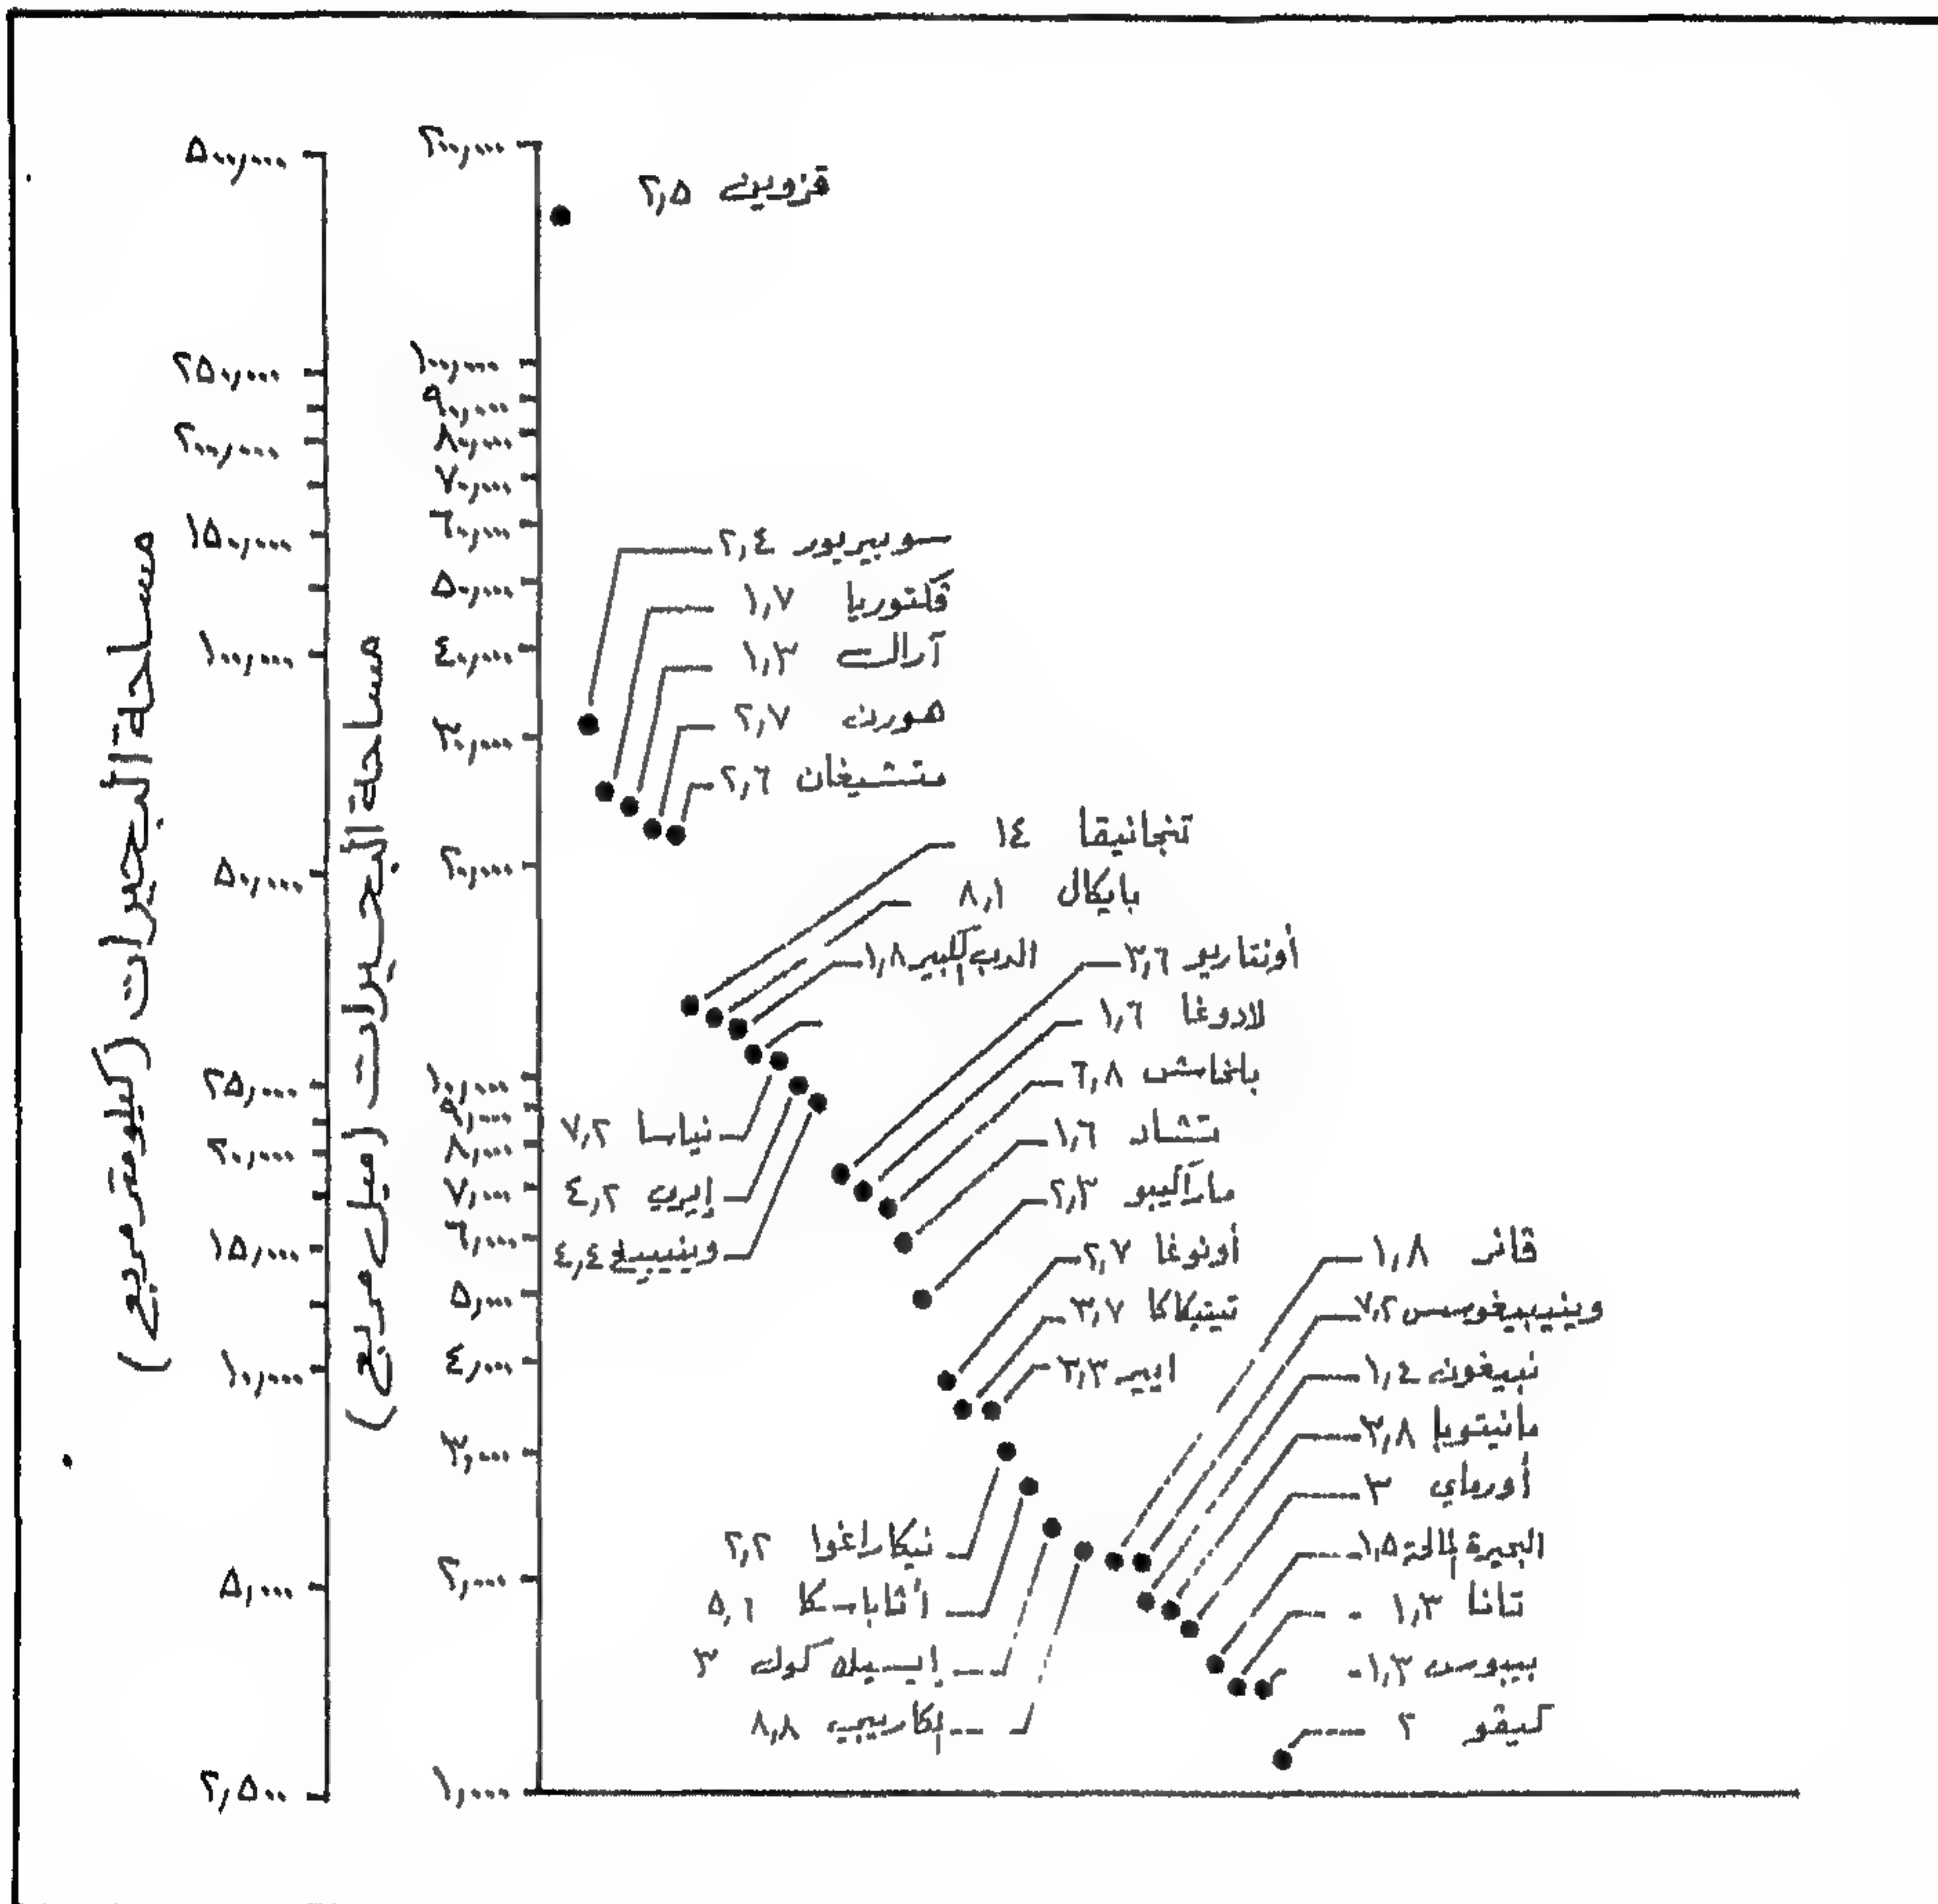 مساحة البحيرات (كيلومتر مربع)
٥٠٠,٠٠٠
٢٥٠,٠٠٠
٢٠٠,٠٠٠
١٥٠,٠٠٠
١٠٠,٠٠٠
٥٠,٠٠٠
٢٥,٠٠٠
٢٠,٠٠٠
١٥,٠٠٠
١٠,٠٠٠
٥,٠٠٠
٢,٥٠٠
مساحة البحيرات (ميل مربع)
٢٠٠,٠٠٠
١٠٠,٠٠٠
٩٠,٠٠٠
٨٠,٠٠٠
٧٠,٠٠٠
٦٠,٠٠٠
٥٠,٠٠٠
٤٠,٠٠٠
٣٠,٠٠٠
٢٠,٠٠٠
١٠,٠٠٠
٩,٠٠٠
٨,٠٠٠
٧,٠٠٠
٦,٠٠٠
٥,٠٠٠
٤,٠٠٠
٣,٠٠٠
٢,٠٠٠
١,٠٠٠
قزوين ٢,٥
سوبيريور ٢,٤
ڤكتوريا ١,٧
آرال ١,٣
هورن ٢,٧
متشيغان ٢,٦
تنجانيقا ١٤
بايكال ٨,١
الدب الكبير ١,٨
نياسا ٧,٢
إيري ٤,٢
وينيبيغ ٤,٤
أونتاريو ٣,٦
لادوغا ١,٦
بلخاش ٦,٨
تشاد ١,٦
ماراكيبو ٢,٣
أونوغا ٢,٧
تيتيكاكا ٣,٧
ايير ٣,٣
نيكاراغوا ٢,٢
أثاباسكا ٥,٦
إيسيك كول ٣
٨,٨
ڤانر ١,٨
وينيبيغوسس ٧,٢
نيبيغون ١,٤
مانيتوبا ٣,٨
أورماي ٣
البحيرة المالحة ١,٥
تانا ١,٣
بيبوس ١,٣
كيڤو ٢